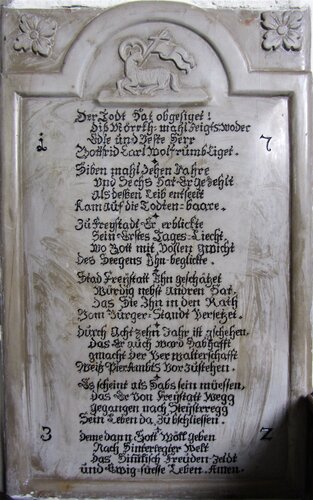 Der Todt Hat obgesiget!
Diß Mörckh=mahl zeigts wo der
Edle und Veste Herr
Gottfrid Carl Wolfrumb liget.
Siben mahl Zehen Jahre
und Sechs Hat Er gezehlt
als deßen Leib entseelt
Kam auf die Todten=baare.
Zu Freystadt Er erblickte
Sein Erstes Tages=Liecht,
Wo Gott mit Vollen
Des Seegens Ihn beglickte.
Stad Freystatt Ihn geschätzet
Würdig nebst andren Hat,
Das Sie Ihn in den Rath
Vom Burger=Standt Versetzet.
Durch Acht=zehn Jahr ist gschehen,
das Er auch ward Habhafft
gmacht der Verwalterschafft
Weiß Pierkambts Vor zu stehen.
Es scheint als Habs sein müessen,
das Er Von Freystatt Wegg
gegangen nach Steyeregg
Sein Leben da, zu bschliessen.
deme dann Gott Wöll geben
Nach Hinterlegter Welt
das Himlisch Freuden=Zeldt
und Ewig=süesse Leben. Amen.
1 7
3 2